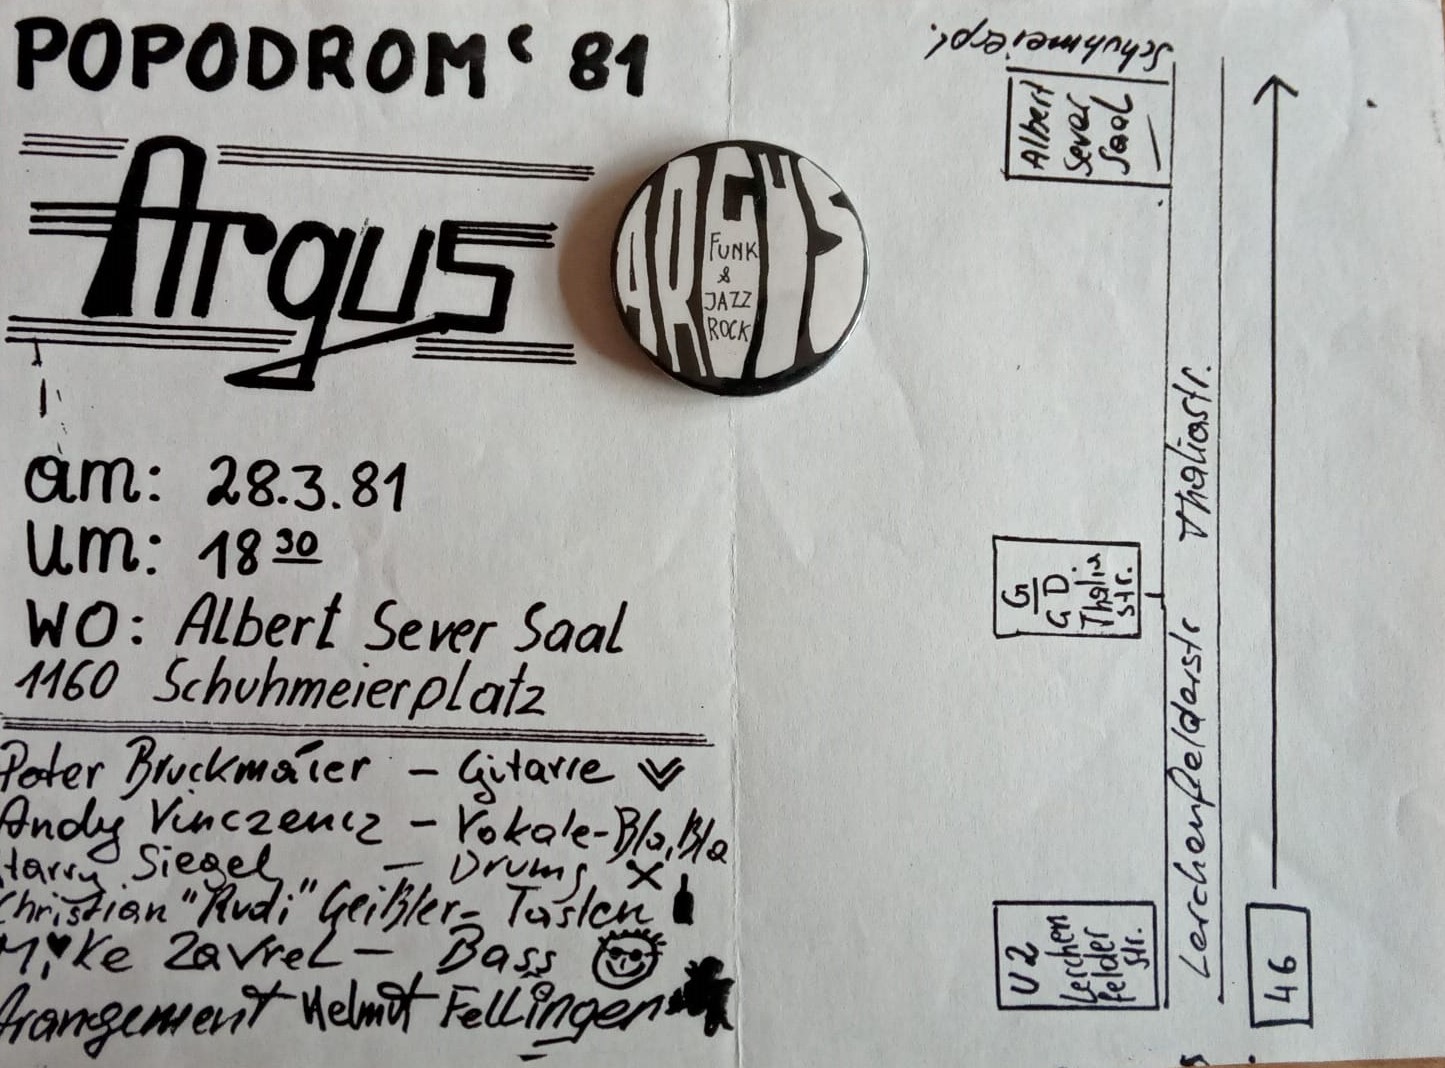 POPODROM‘ 81
Argus
ARGUS
FUNK
&
JAZZ
ROCK
am: 28.3.81
um: 18 30
WO: Albert Sever Saal
1160 Schuhmeierplatz
Peter Bruckmaier – Gitarre
Andy Vinczencz – Vokale-Bla, Bla
Harry Siegel – Drums
Christian "Rudi" Geißler – Tasten
Mike Zavrel – Bass
Arrangement Helmut Fellinger
Schuhmeierpl.
Albert
Sever
Saal
Thaliastr.
G
GD
Thalia
str.
Lerchenfelderstr
U2
Lerchen
felder
str.
46